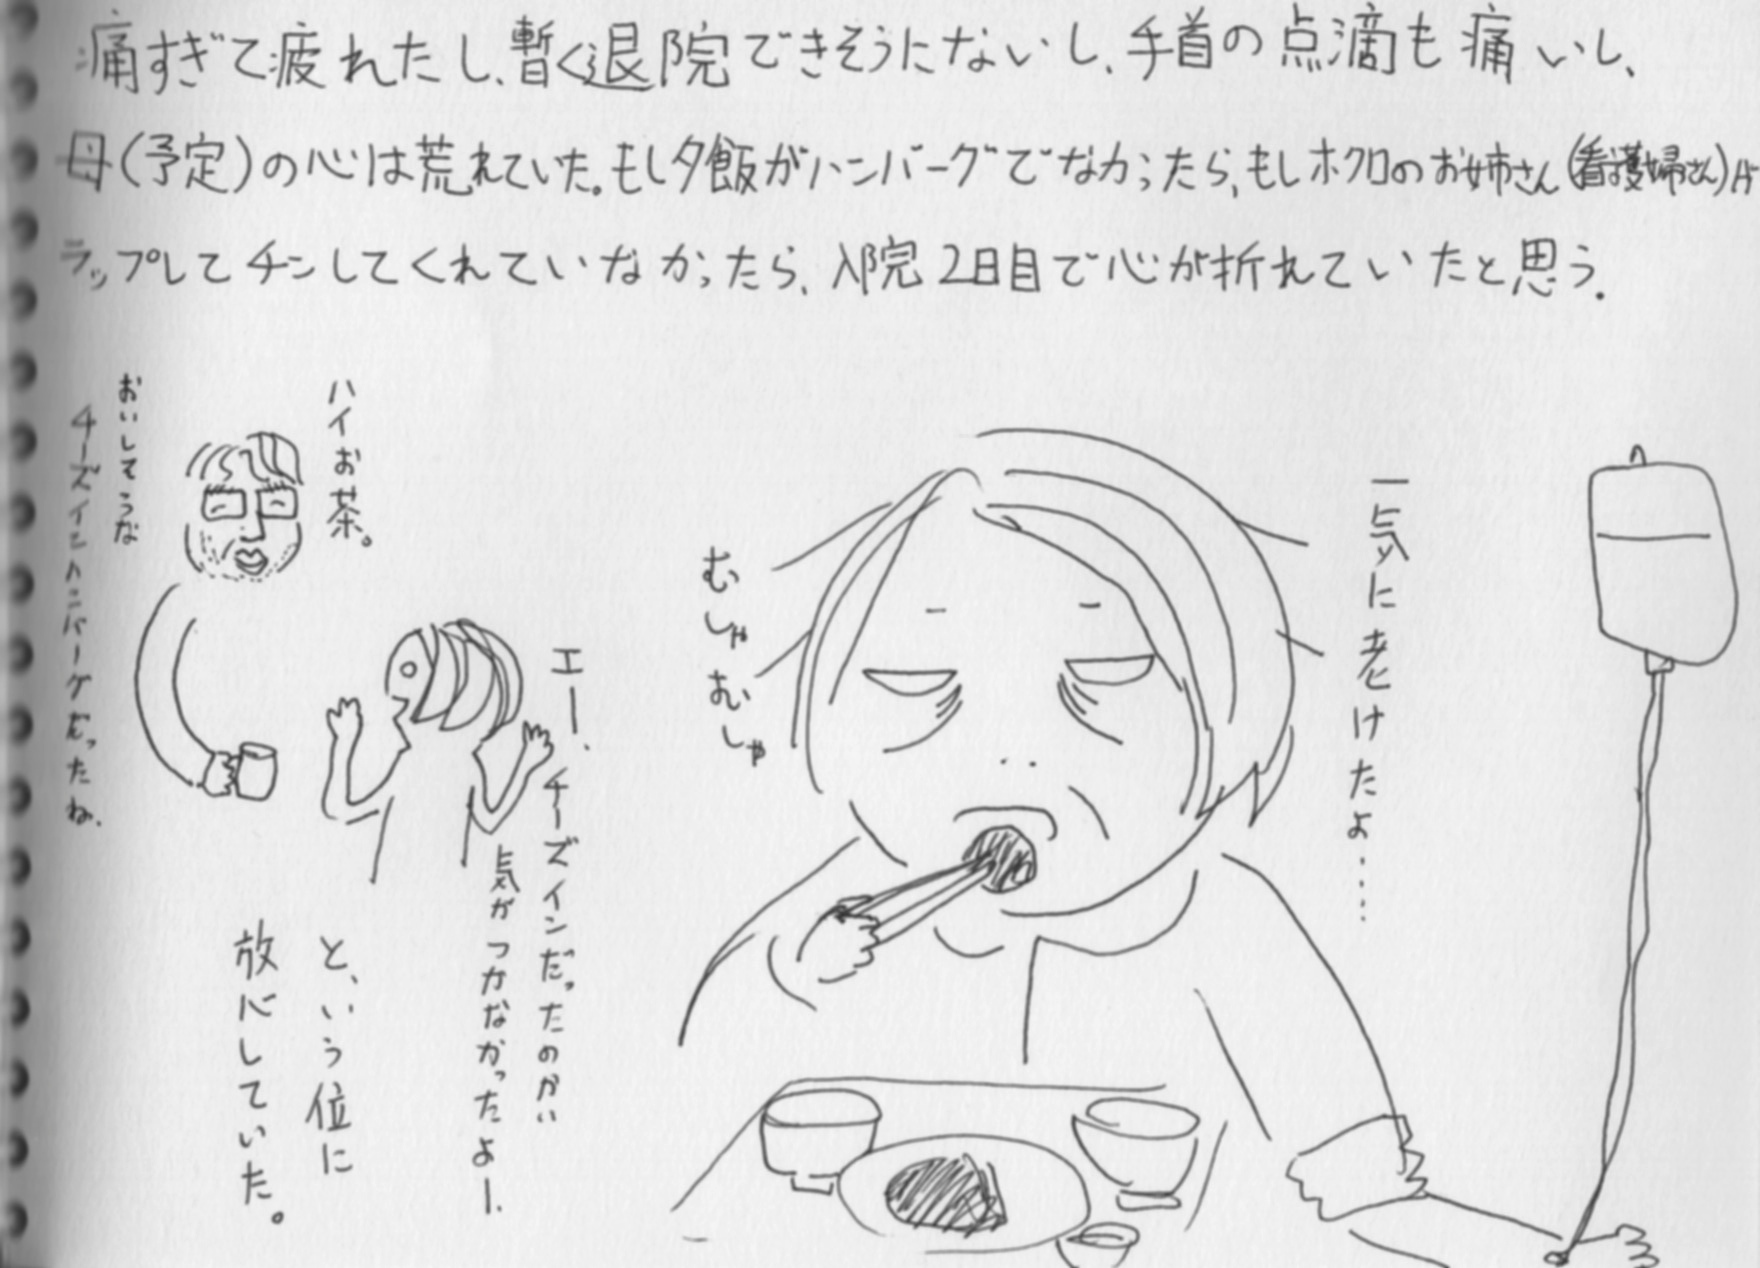 痛すぎて疲れたし、暫く退院できそうにないし、手首の点滴も痛いし、
母(予定)の心は荒れていた。もし夕飯がハンバーグでなかったら、もしホクロのお姉さん(看護婦さん)が
ラップしてチンしてくれていなかったら、入院2日目で心が折れていたと思う。
一気に老けたよ……
むしゃむしゃ
ハイお茶。
おいしそうな
チーズインハンバーグだったね。
エー、チーズインだったのかい
気がつかなかったよー。
と、いう位に
放心していた。